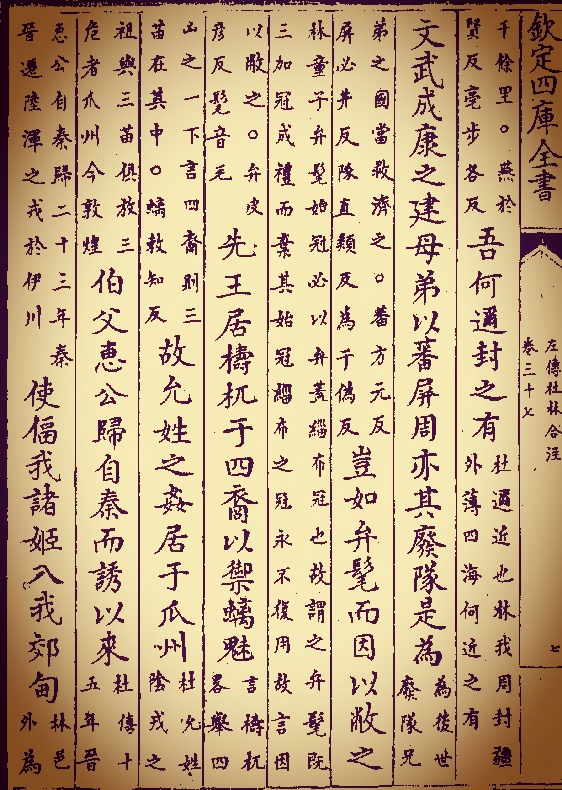 欽定四庫全書
左傳杜林合注
卷三十七
七
千餘里○燕於
賢反亳步各反
吾何邇封之有
杜邇近也林我周封疆
外薄四海何近之有
文武成康之建母弟以蕃屏周亦其廢隊是為
為後世
廢隊兄
弟之國當救濟之○蕃方元反
屏必井反隊直類反為于偽反
豈如弁髦而因以敝之
林童子弁髦始冠必以弁蓋緇布冠也故謂之弁髦既
三加冠成禮而棄其始冠緇布之冠永不復用故言因
以敝之○弁皮
彥反髦音毛
先王居檮杌于四裔以禦螭魅
言檮杌
畧舉四
山之一下言四裔則三
苗在其中○螭敕知反
故允姓之姦居于瓜州
杜允姓
陰戎之
祖與三苗俱放三
危者瓜州今敦煌
伯父惠公歸自秦而誘以來
杜僖十
五年晉
惠公自秦歸二十三年秦
晉遷陸渾之戎於伊川
使偪我諸姬入我郊甸
林邑
外為